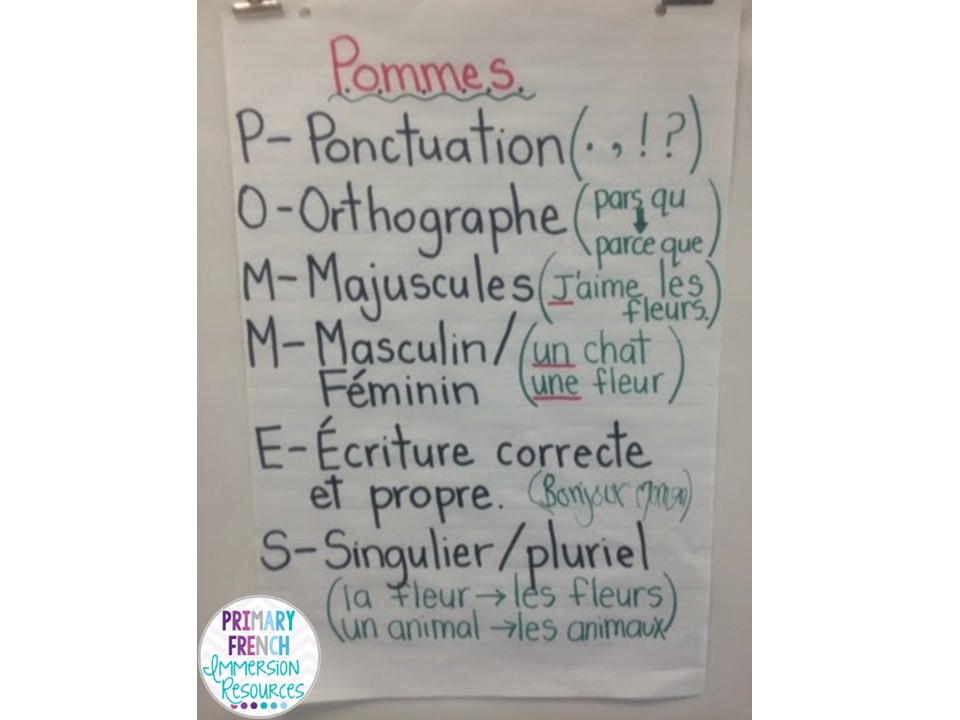 P.O.M.M.E.S.
P- Ponctuation (. , ! ?)
O- Orthographe (pars qu
parce que)
M- Majuscules (J'aime les
fleurs.)
M- Masculin/ (un chat
Féminin une fleur)
E- Écriture correcte
et propre. (Bonjour
S- Singulier/pluriel
(la fleur → les fleurs)
(un animal → les animaux)
PRIMARY
FRENCH
IMMERSION
RESOURCES